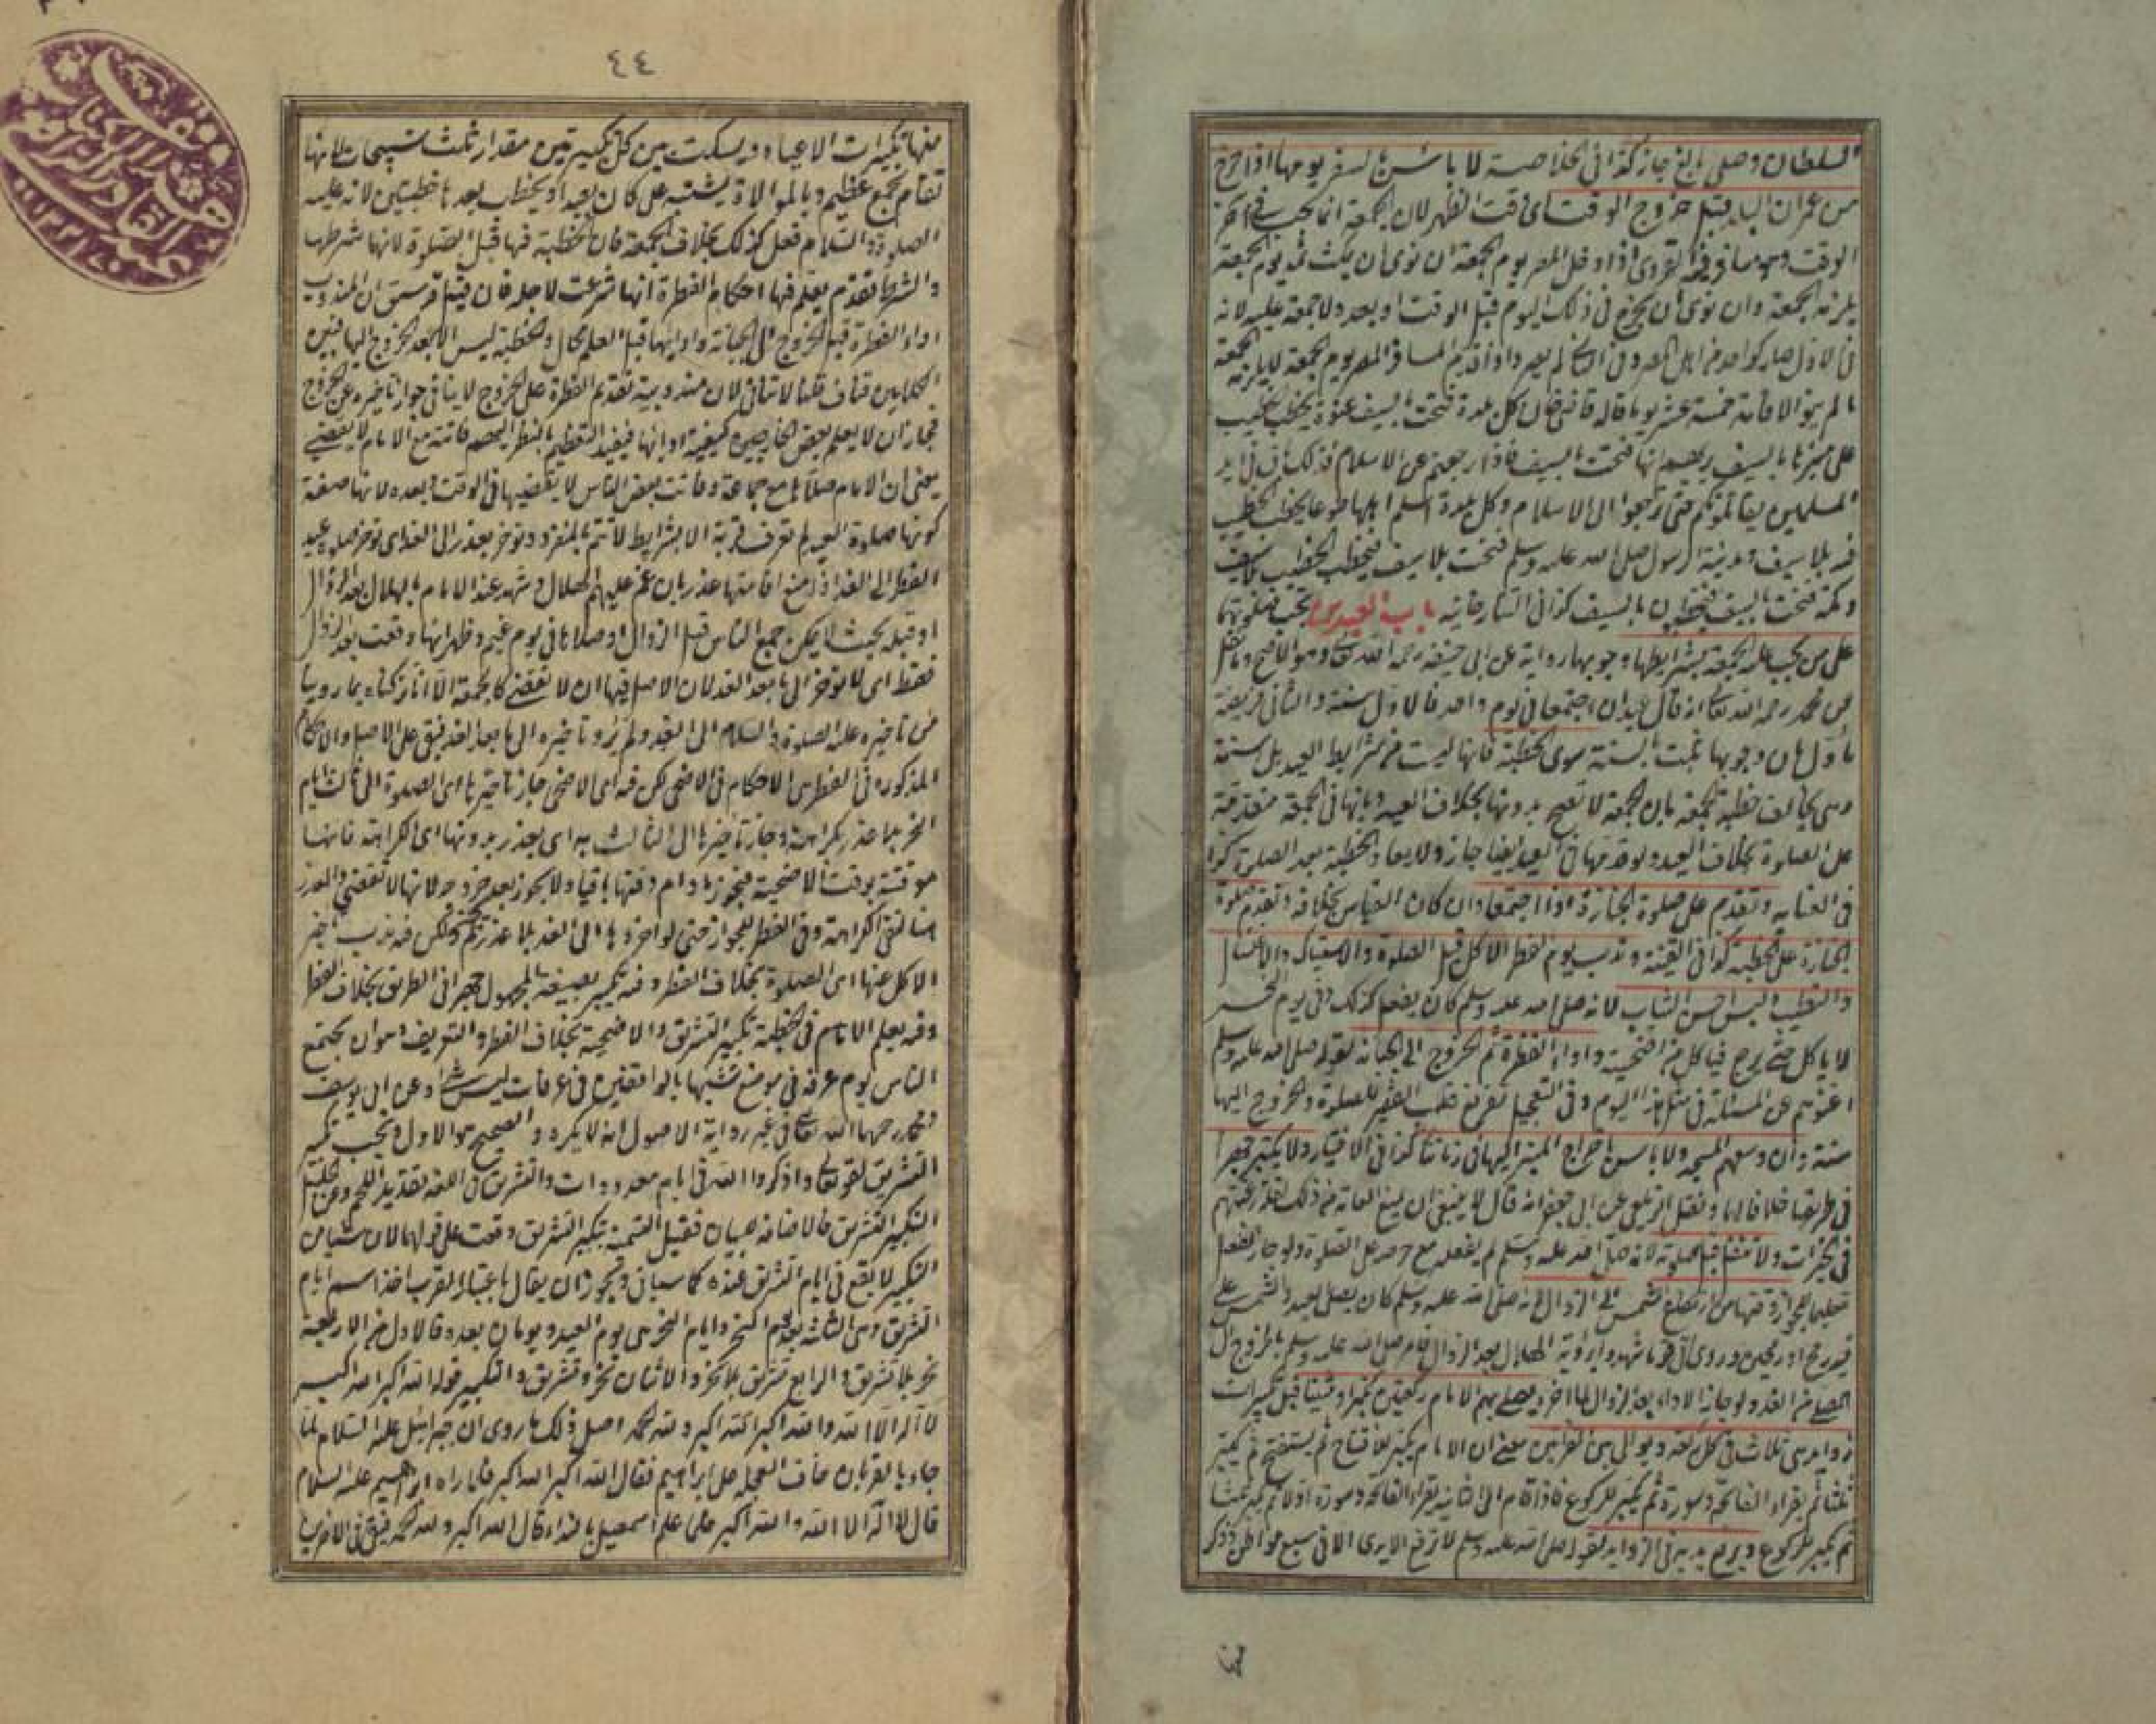 السلطان وصلى بالغ جاز كذا في الخلاصة لا باس بالسفر يومها اذا خرج
من عمران البلد قبل خروج الوقت اى وقت الظهر لان الجمعة انما تجب في آخر
الوقت القروى اذا دخل المصر يوم الجمعة ان نوى ان يمكث ثمه يوم الجمعة
يلزمه الجمعة وان نوى ان يخرج فى ذلك اليوم قبل الوقت او بعده لا جمعة عليه لانه
فى الاول صار كواحد من اهل المصر وفى الثانى لم يصر واذا قدم المسافر المصر يوم الجمعة لا يلزمه الجمعة
ما لم ينو الاقامة خمسة عشر يوما قال قاضى خان كل بلدة فتحت بالسيف عنوة يخطب الخطيب
على منبرها بالسيف يريهم انها فتحت بالسيف فاذا رجعتم عن الاسلام فذلك باق فى ايدى
المسلمين يقاتلونكم حتى ترجعوا الى الاسلام وكل بلدة اسلم اهلها طوعا يخطب الخطيب
فيه بلا سيف ومدينة الرسول صلى الله عليه وسلم فتحت بلا سيف فيخطب الخطيب بلا سيف
ومكة فتحت بالسيف فيخطب بالسيف كذا فى التتارخانية باب العيدين تجب صلوتهما
على من تجب عليه الجمعة بشرايطها وجوبها رواية عن ابى حنيفة رحمه الله تعالى وهو الاصح وما نقل
عن محمد رحمه الله تعالى انه قال عيدان اجتمعا فى يوم واحد فالاول سنة والثانى فريضة
مأول بان وجوبها ثبت بالسنة سوى الخطبة فانها ليست من شرايط العيد بل سنة
وهى تخالف خطبة الجمعة بان الجمعة لا تصح بدونها بخلاف العيد وبانها فى الجمعة متقدمة
على الصلوة بخلاف العيد ولو قدمها فى العيد ايضا جاز ولا يعاد الخطبة بعد الصلوة كذا
فى العناية وتقدم على صلوة الجنازة اذا اجتمعا وان كان القياس بخلافه وتقدم صلوة
الجنازة على الخطبة كذا فى القنية وندب يوم الفطر الاكل قبل الصلوة والاستياك والاغتسال
والتطيب ولبس احسن الثياب لانه صلى الله عليه وسلم كان يفعل كذلك وفى يوم النحر
لا ياكل حتى يرجع فياكل من اضحيته واداء الفطرة ثم الخروج الى الجبانة لقوله صلى الله عليه وسلم
اغنوهم عن المسئلة فى مثل هذا اليوم وفى التعجيل تفريغ قلب الفقير للصلوة والخروج اليها
سنة وان وسعهم المسجد ولا باس باخراج المنبر اليها فى زماننا كذا فى الاختيار ولا يكبر جهرا
فى طريقها خلافا لهما ونقل الزيلعى عن ابى جعفر انه قال لا ينبغى ان يمنع العامة من ذلك لقلة رغبتهم
فى الخيرات ولا يتنفل قبل صلوته لانه صلى الله عليه وسلم لم يفعله مع حرصه على الصلوة ولو جاز لفعل
تعليما للجواز وقتها من ارتفاع الشمس الى الزوال لانه صلى الله عليه وسلم كان يصلى العيد والشمس على
قيد رمح او رمحين وروى ان قوما شهدوا برؤية الهلال بعد الزوال فامر صلى الله عليه وسلم بالخروج الى
المصلى من الغد ولو جاز الاداء بعد الزوال لما اخر ويصلى بهم الامام ركعتين مكبرا ومثنيا قبل تكبيرات
زوايد هى ثلاث فى كل ركعة ويوالى بين القرائتين يعنى ان الامام يكبر للافتتاح ثم يستفتح ثم يكبر
ثلثا ثم يقراء الفاتحة وسورة ثم يكبر للركوع فاذا قام الى الثانية يقراء الفاتحة وسورة اولا ثم يكبر ثلثا
ثم يكبر للركوع ويرفع يديه فى الزوايد لقوله صلى الله عليه وسلم لا ترفع الايدى الا فى سبع مواطن وذكر
٤٤
منها تكبيرات الاعياد ويسكت بين كل تكبيرتين مقدار ثلث تسبيحات لانها
تقام بجمع عظيم وبالموالاة يشتبه على من كان بعيدا ويخطب بعدها خطبتين لانه عليه
الصلوة والسلام فعل كذلك بخلاف الجمعة فان الخطبة فيها قبل الصلوة لانها شرطها
والشرط متقدم يعلم فيها احكام الفطرة انها شرعت لاجله فان قيل قد سبق ان المندوب
اداء الفطرة قبل الخروج الى الجبانة واداؤها قبل العلم محال والخطبة ليس الا بعد الخروج اليها فبين
الكلامين تناف قلنا لا تنافى لان مندوبية تقديم الفطرة على الخروج لا ينافى جواز تاخيره عن الخروج
فجاز ان لا يعلم بعض الخارجين كيفية ادائها فيفيد التعليم بالنظر اليهم فاتته مع الامام لا يقضى
يعنى ان الامام صلاها مع جماعة وفاتت بعض الناس لا يقضيها فى الوقت وبعده لانها بصفة
كونها صلوة العيد لم تعرف قربة الا بشرايط لا تتم بالمنفرد وتؤخر بعذر الى الغد اى تؤخر صلوة عيد
الفطر الى الغد اذا منع اقامتها عذر بان غم عليهم الهلال وشهد عند الامام بالهلال بعد الزوال
او قبله بحيث لا يمكن جمع الناس قبل الزوال او صلاها فى يوم غيم وظهر انها وقعت بعد الزوال
فقط اى لا تؤخر الى ما بعد الغد لان الاصل فيها ان لا تقضى كالجمعة الا انا تركناه بما روينا
من تاخيره عليه الصلوة والسلام الى الغد ولم يرو تاخيره الى ما بعد الغد فبقى على الاصل والاحكام
المذكوره فى الفطر هى الاحكام فى الاضحى لكن فيه اى الاضحى جاز تاخيرها اى الصلوة الى ثالث ايام
النحر بلا عذر بكراهة وجاز تاخيرها الى الثالث به اى بعذر بدونها اى الكراهة فانها
موقتة بوقت الاضحية فتجوز ما دام وقتها باقيا ولا يجوز بعد خروجه لانها لا تقضى والعذر
هنا لنفى الكراهة وفى الفطر للجواز حتى لو اخروها الى الغد بلا عذر لم يجز ولكن فيه ندب تاخير
الاكل عنها اى الصلوة بخلاف الفطر وفيه تكبير بصيغة المجهول جهرا فى الطريق بخلاف الفطر
وفيه يعلم الامام فى الخطبة تكبير التشريق والاضحية بخلاف الفطر والتعريف وهو ان يجتمع
الناس يوم عرفة فى موضع تشبها بالواقفين فى عرفات ليس بشئ وعن ابى يوسف
ومحمد رحمهما الله تعالى فى غير رواية الاصول انه لا يكره والصحيح هو الاول وتجب تكبير
التشريق لقوله تعالى واذكروا الله فى ايام معدودات والتشريق فى اللغة تقديد اللحم وعن الخليل
التكبير التشريق فالاضافة للبيان فقيل التسمية بتكبير التشريق وقعت على قولهما لان شيئا من
التكبير لا يقع فى ايام التشريق عنده كما سياتى ويجوز ان يقال باعتبار القرب اخذ اسم ايام
التشريق وهى الثلثة بعد يوم النحر وايام النحر هى يوم العيد ويومان بعده فالاول من الاربعة
نحر بلا تشريق والرابع تشريق بلا نحر والاثنان نحر وتشريق والتكبير قوله الله اكبر الله اكبر
لا اله الا الله والله اكبر الله اكبر ولله الحمد اصل ذلك ما روى ان جبرائيل عليه السلام لما
جاء بالقربان خاف العجلة على ابراهيم فقال الله اكبر الله اكبر فلما رآه ابراهيم عليه السلام
قال لا اله الا الله والله اكبر فلما علم اسمعيل بالفداء قال الله اكبر ولله الحمد فبقى فى الاخرين